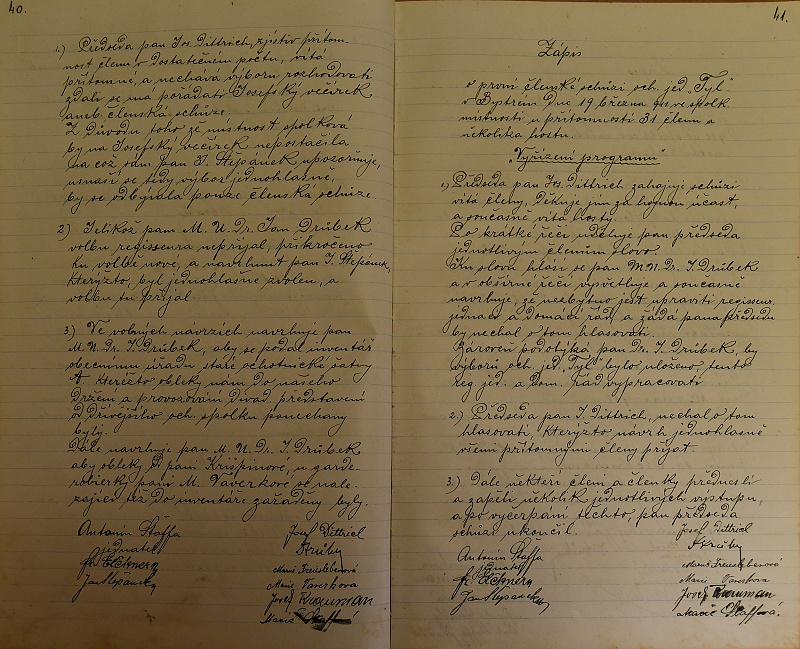 40.
1.) Předseda pan Jos. Dittrich, zjistiv přítom-
nost členů v dostatečném počtu, vítá
přítomné, a nechává výboru rozhodovati
zdali se má pořádati Josefský večírek
aneb členská schůze.
Z důvodu toho že místnost spolková
by na Josefský večírek nepostačila
na což sám pan J. Štěpánek upozorňuje,
usnáší se tedy výbor jednohlasně,
by se odbývala pouze členská schůze.
2.) Jelikož pan M. U. Dr. Jan Drůbek
volbu regisseura nepřijal, přikročeno
ku volbě nové, a navrhnut pan J. Štěpánek,
kterýžto, byl jednohlasně zvolen, a
volbu tu přijal
3.) Ve volných návrzích navrhuje pan
M. U. Dr. J. Drůbek, aby se podal inventář
obecnímu úřadu staré ochotnické šatny
kteréžto obleky nám do našeho
držení a provozování divad. představení
od dřívějšího och. spolku ponechány
byly.
Dále navrhuje pan M. U. Dr. J. Drůbek
aby obleky od paní Krišpinové, u garde-
robiérky paní M. Vaverkové se nale-
zající též do inventáře zařaděny byly.
Antonín Štaffa
jednatel
Jan Štěpánek
Josef Dittrich
Drůbek
Marie Freislebenová
Marie Vaverkova
Josef
Marie Štaffová
41.
Zápis
o první členské schůzi och. jed. "Tyl"
v Bystrém dne 19 března ve spolk
místnosti u přítomnosti 31 členů a
několika hostů.
"Vyřízení programu"
1.) Předseda pan Jos. Dittrich zahajuje schůzi
vítá členy, děkuje jim za hojnou účast,
a současně vítá hosty.
Po krátké řeči uděluje pan předseda
jednotlivým členům slovo.
Ku slovu hlásí se pan M. U. Dr. J. Drůbek
a v obšírné řeči vysvětluje a současně
navrhuje, že nezbytno jest upraviti regisseur.
jednací a domácí řád, a žádá pana předsedu
by nechal o tom hlasovati.
Zároveň podotýká pan Dr. J. Drůbek, by
výboru och. jed. "Tyl" bylo uloženo, tento
reg. jed. a dom. řád vypracovati
2.) Předseda pan J. Dittrich, nechal o tom
hlasovati, kterýžto návrh jednohlasně
všemi přítomnými členy přijat.
3.) Dále někteří členi a členky přednesli
a zapěli několik jednotlivých výstupů,
a po vyčerpání těchto, pan předseda
schůzi ukončil.
Antonín Štaffa
jednatel
Jan Štěpánek
Josef Dittrich
Drůbek
Marie Freislebenová
Marie Vaverkova
Josef
Marie Štaffová